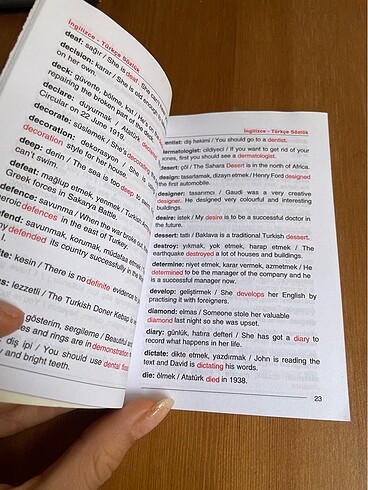 İngilizce - Türkçe Sözlük
deaf: sağır / She is deaf
decision: karar / She is old enough
on her own.
deck: güverte, bölme, kat / He's on
repairing the broken part of the
declare: duyurmak / Atatürk declared
Circular on 22 June 1919.
decorate: süslemek / She's decorating
decoration: dekorasyon /
decoration style for her house.
deep: derin / The sea is too deep to swim
can't swim.
defeat: mağlup etmek, yenmek / Turkish
Greek forces in Sakarya Battle.
defence: savunma / When the war broke out,
heroic defences in the east of Turkey.
defend: savunmak, korumak, müdafaa etmek
defended its country successfully in the
kesin / There is no definite evidence to
lezzetli / The Turkish Doner Kebap is
gösterim, sergileme / Beautiful
and rings are in demonstration
diş ipi / You should use dental floss
and bright teeth.
İngilizce - Türkçe Sözlük
dentist: diş hekimi / You should go to a dentist.
dermatologist: cildiyeci / If you want to get rid of your
acnes, first you should see a dermatologist.
desert: çöl / The Sahara Desert is in the north of Africa.
design: tasarlamak, dizayn etmek / Henry Ford designed
the first automobile.
designer: tasarımcı / Gaudi was a very creative
designer. He designed very colourful and interesting
buildings.
desire: istek / My desire is to be a successful doctor in
the future.
dessert: tatlı / Baklava is a traditional Turkish dessert.
destroy: yıkmak, yok etmek, harap etmek / The
earthquake destroyed a lot of houses and buildings.
determine: niyet etmek, karar vermek, azmetmek / He
determined to be the manager of the company and he
is a successful manager now.
develop: geliştirmek / She develops her English by
practising it with foreigners.
diamond: elmas / Someone stole her valuable
diamond last night so she was upset.
diary: günlük, hatıra defteri / She has got a diary to
record what happens in her life.
dictate: dikte etmek, yazdırmak / John is reading the
text and David is dictating his words.
die: ölmek / Atatürk died in 1938.
23